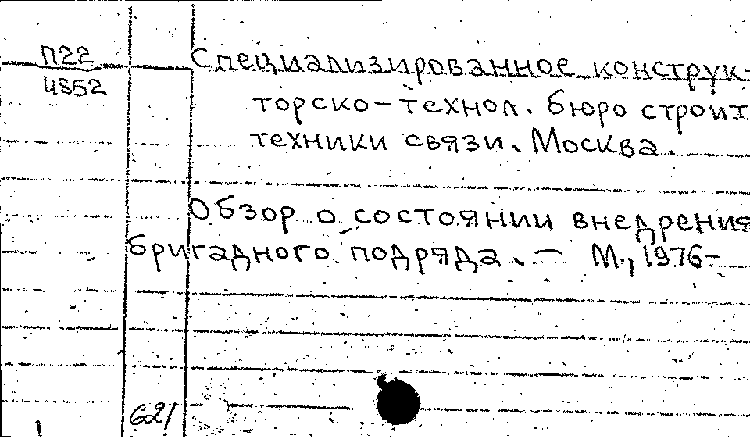 П22
4852
Специализированное конструк-
торско-технол. бюро строит
техники связи. Москва.
Обзор о состоянии внедрения
бригадного подряда. — М., 1976-
621